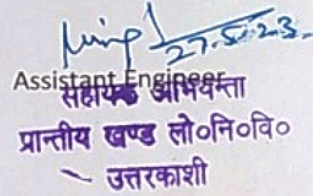 27.5.23
Assistant Engineer
सहायक अभियन्ता
प्रान्तीय खण्ड लो०नि०वि०
उत्तरकाशी